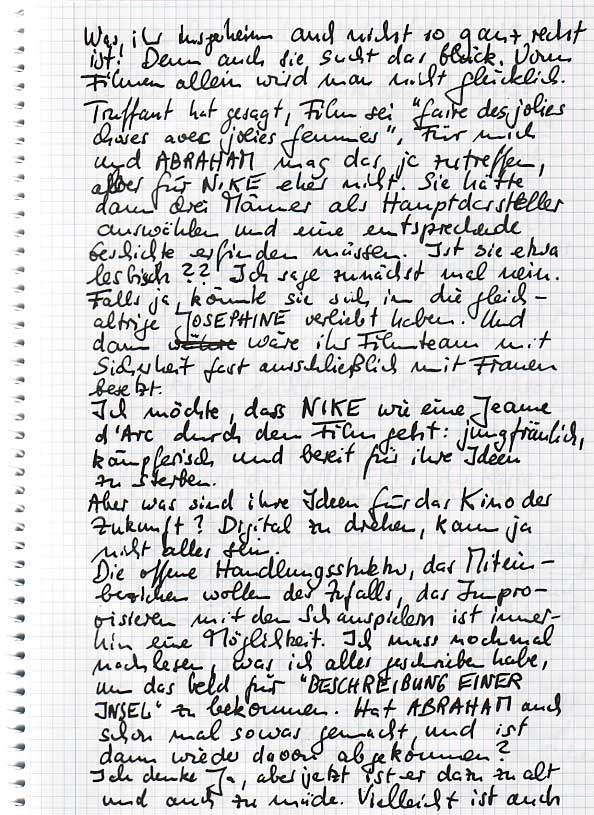 Was ihr insgeheim auch nicht so ganz recht
ist! Denn auch sie sucht das Glück. Vom
Filmen allein wird man nicht glücklich.
Truffaut hat gesagt, Film sei "faire des jolies
choses avec jolies femmes", Für mich
und ABRAHAM mag das ja zutreffen,
aber für NIKE eher nicht. Sie hätte
dann drei Männer als Hauptdarsteller
auswählen und eine entsprechende
Geschichte erfinden müssen. Ist sie etwa
lesbisch?? Ich sage zunächst mal nein.
Falls ja, könnte sie sich in die gleich-
altrige JOSEPHINE verliebt haben. Und
dann wäre ihr Filmteam mit
Sicherheit fast ausschließlich mit Frauen
besetzt.
Ich möchte, dass NIKE wie eine Jeanne
d'Arc durch den Film geht: jungfräulich,
kämpferisch und bereit für ihre Ideen
zu sterben.
Aber was sind ihre Ideen für das Kino der
Zukunft? Digital zu drehen, kann ja
nicht alles sein.
Die offene Handlungsstruktur, das Mitein-
beziehen wollen des Zufalls, das Impro-
visieren mit den Schauspielern ist immer-
hin eine Möglichkeit. Ich muss nochmal
nachlesen, was ich alles geschrieben habe,
um das Geld für "BESCHREIBUNG EINER
INSEL" zu bekommen. Hat ABRAHAM auch
schon mal sowas gemacht, und ist
dann wieder davon abgekommen?
Ich denke Ja, aber jetzt ist er dazu zu alt
und auch zu müde. Vielleicht ist auch